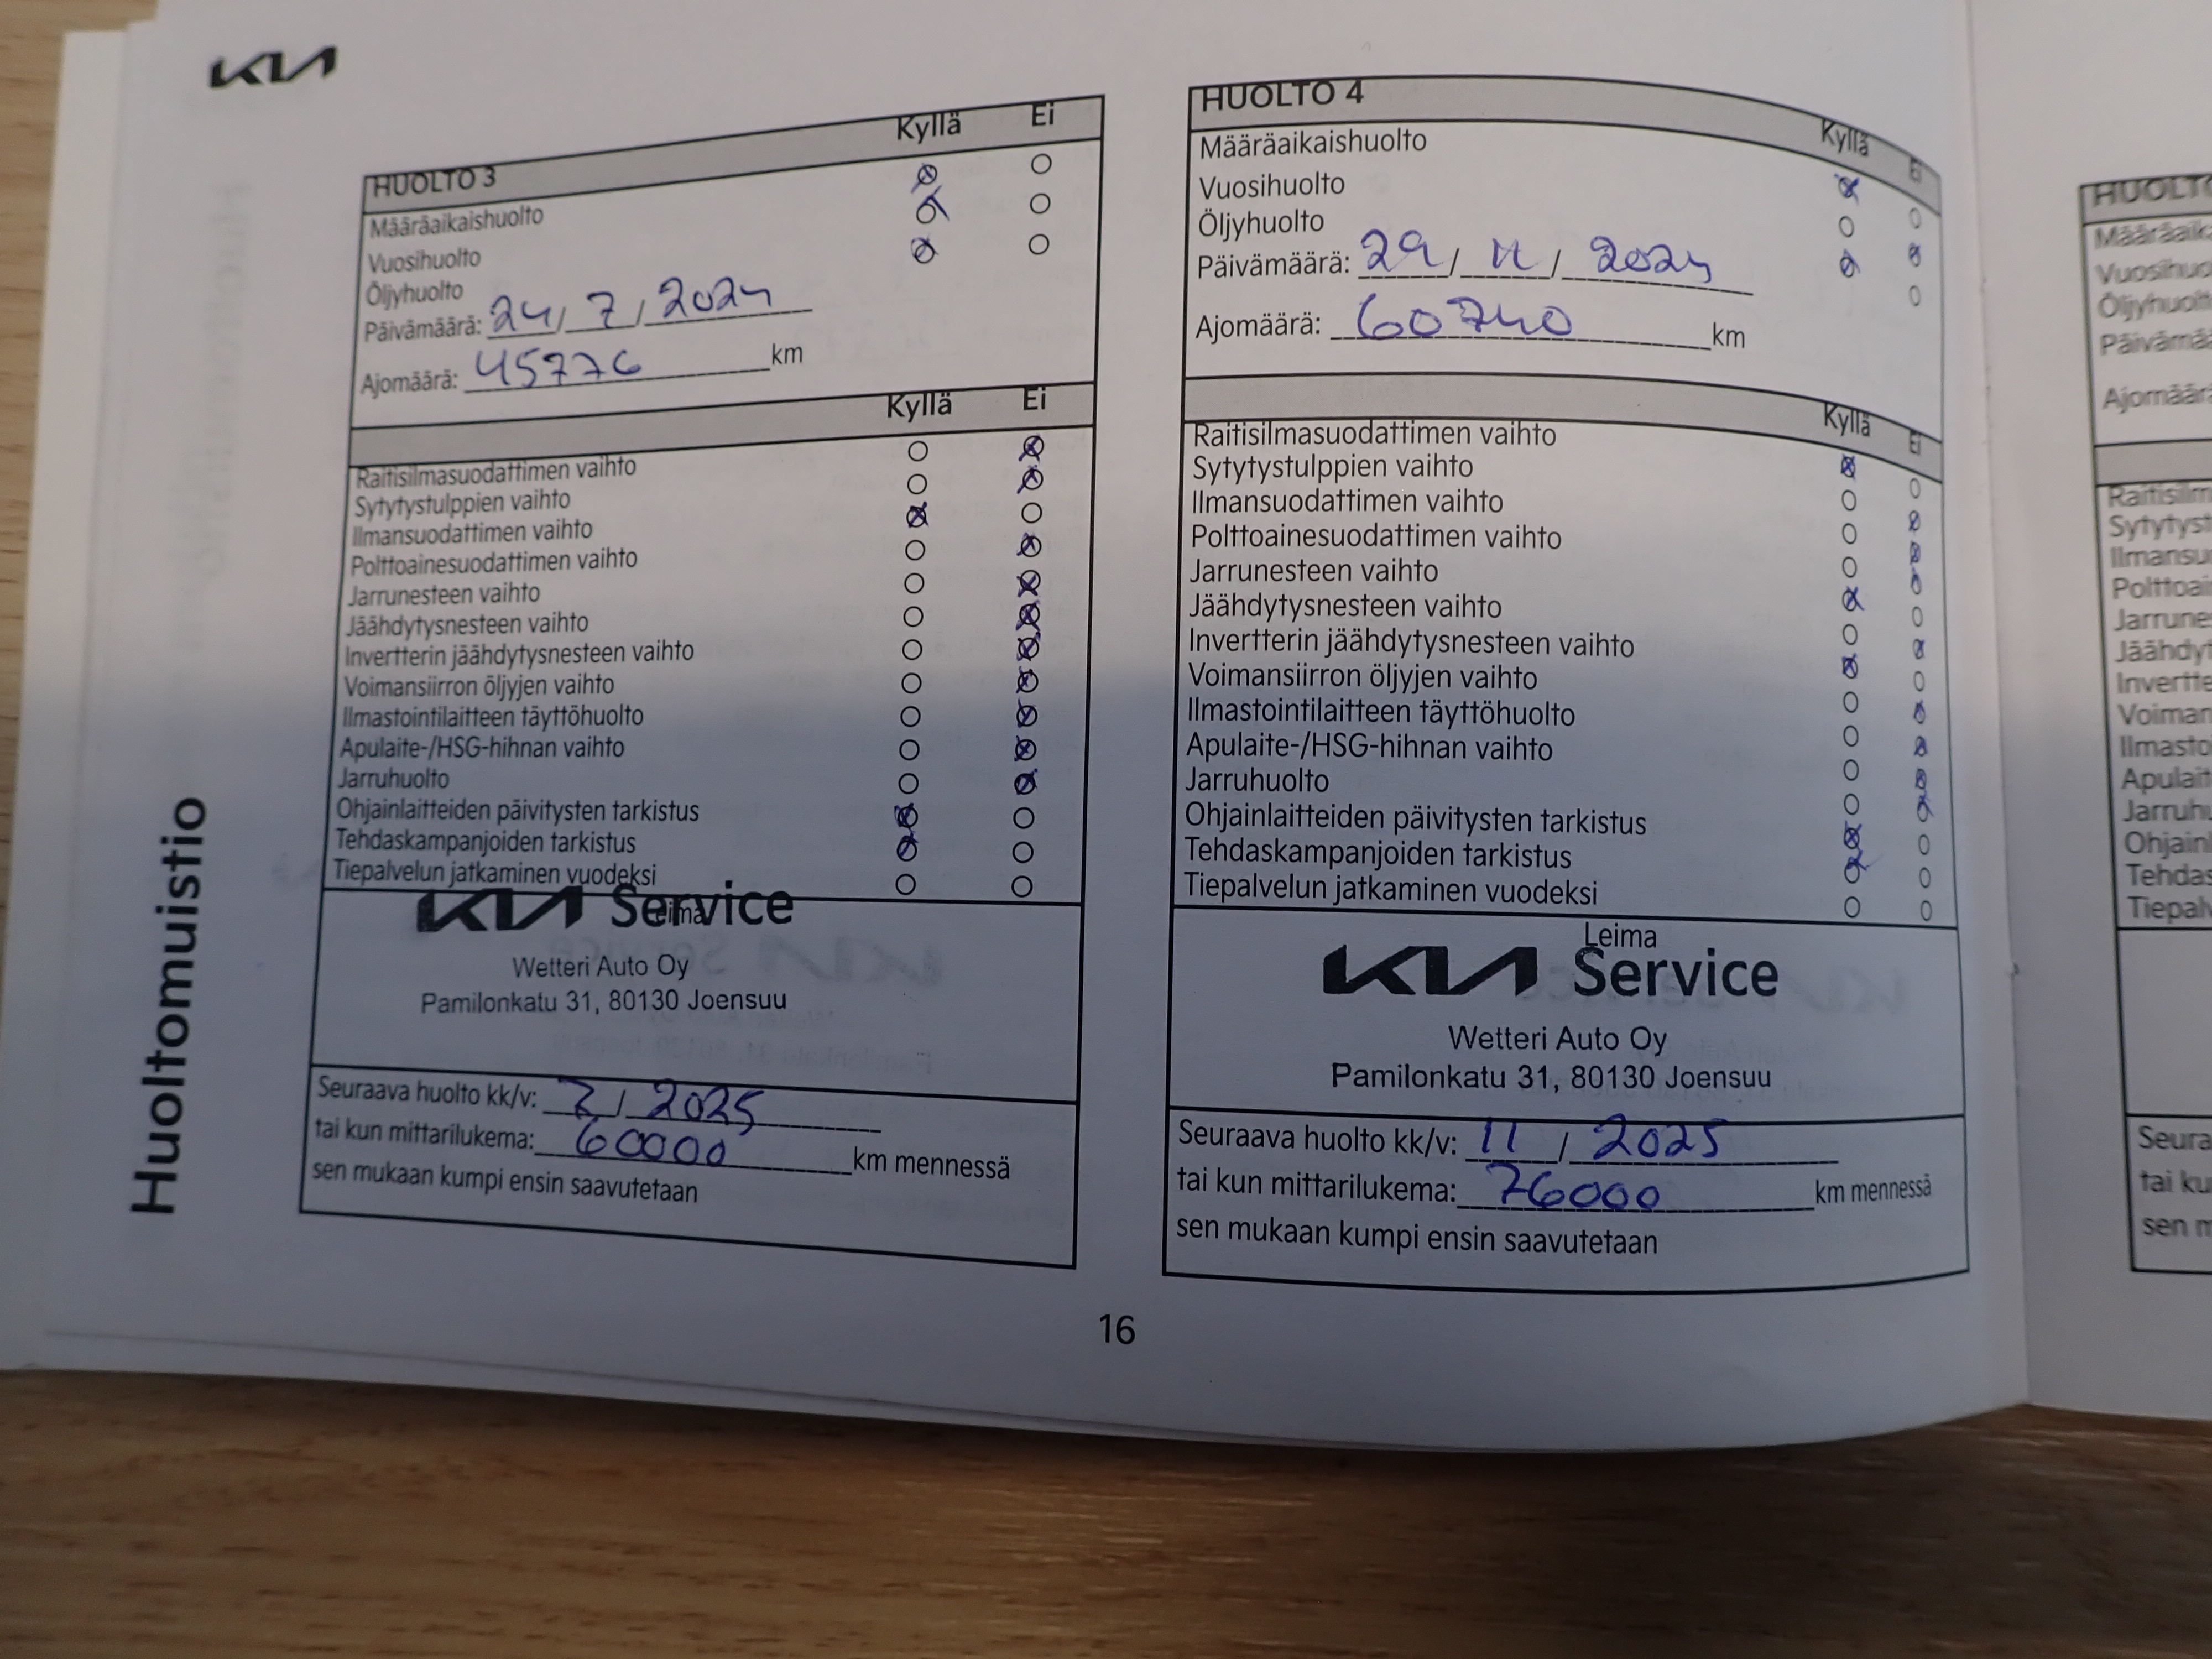 KIA
Huoltomuistio
HUOLTO 3 Kyllä Ei
Määräaikaishuolto
Vuosihuolto
Öljyhuolto
Päivämäärä: 24/7/2024
Ajomäärä: 45776 km
Kyllä Ei
Raitisilmasuodattimen vaihto
Sytytystulppien vaihto
Ilmansuodattimen vaihto
Polttoainesuodattimen vaihto
Jarrunesteen vaihto
Jäähdytysnesteen vaihto
Invertterin jäähdytysnesteen vaihto
Voimansiirron öljyjen vaihto
Ilmastointilaitteen täyttöhuolto
Apulaite-/HSG-hihnan vaihto
Jarruhuolto
Ohjainlaitteiden päivitysten tarkistus
Tehdaskampanjoiden tarkistus
Tiepalvelun jatkaminen vuodeksi
Leima
KIA Service
Wetteri Auto Oy
Pamilonkatu 31, 80130 Joensuu
Seuraava huolto kk/v: 7/2025
tai kun mittarilukema: 60000 km mennessä
sen mukaan kumpi ensin saavutetaan
HUOLTO 4 Kyllä Ei
Määräaikaishuolto
Vuosihuolto
Öljyhuolto
Päivämäärä: 29/11/2024
Ajomäärä: 60740 km
Kyllä Ei
Raitisilmasuodattimen vaihto
Sytytystulppien vaihto
Ilmansuodattimen vaihto
Polttoainesuodattimen vaihto
Jarrunesteen vaihto
Jäähdytysnesteen vaihto
Invertterin jäähdytysnesteen vaihto
Voimansiirron öljyjen vaihto
Ilmastointilaitteen täyttöhuolto
Apulaite-/HSG-hihnan vaihto
Jarruhuolto
Ohjainlaitteiden päivitysten tarkistus
Tehdaskampanjoiden tarkistus
Tiepalvelun jatkaminen vuodeksi
Leima
KIA Service
Wetteri Auto Oy
Pamilonkatu 31, 80130 Joensuu
Seuraava huolto kk/v: 11/2025
tai kun mittarilukema: 76000 km mennessä
sen mukaan kumpi ensin saavutetaan
16